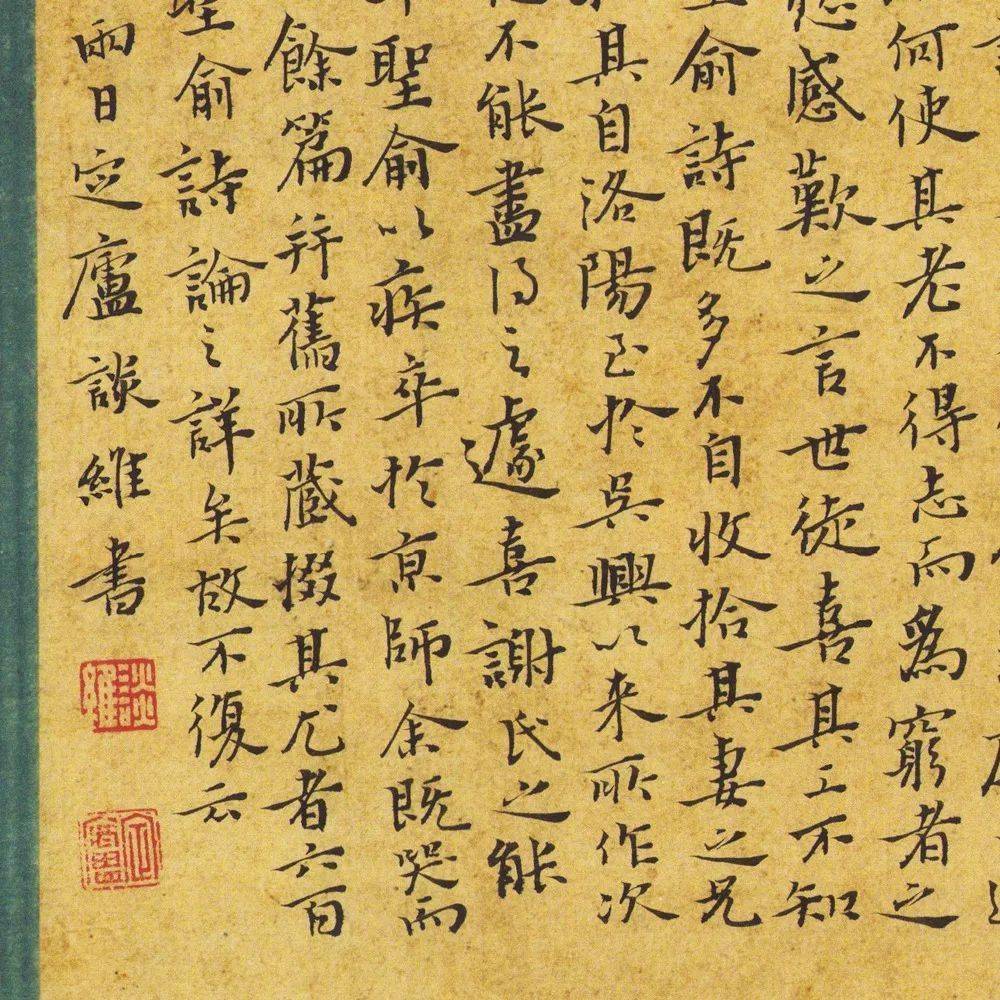 何使其老不得志而為窮者之
感歎之言世徒喜其工不知
俞詩既多不自收拾其妻之兄
其自洛陽至於吳興以來所作次
不能盡得之遽喜謝氏之能
聖俞以疾卒於京師余既哭而
餘篇并舊所藏掇其尤者六百
聖俞詩論之詳矣故不復云
雨日定廬談維書
談維
定廬